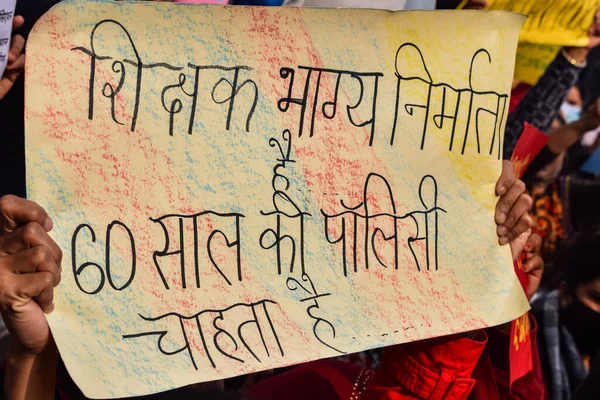 शिक्षक भाग्य निर्माता
है.....
60 साल की पॉलिसी
चाहता है.......